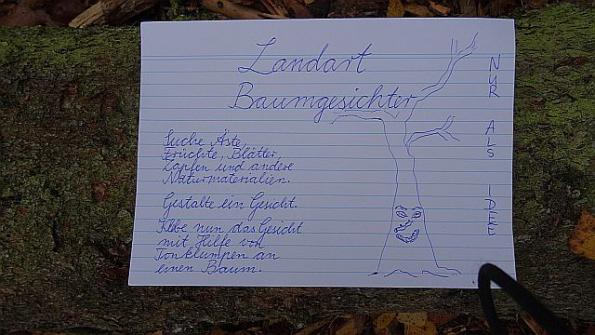 Landart
Baumgesichter
Suche Äste,
Früchte, Blätter,
Zapfen und andere
Naturmaterialien.
Gestalte ein Gesicht.
Klebe nun das Gesicht
mit Hilfe von
Tonklumpen an
einen Baum.
NUR ALS IDEE